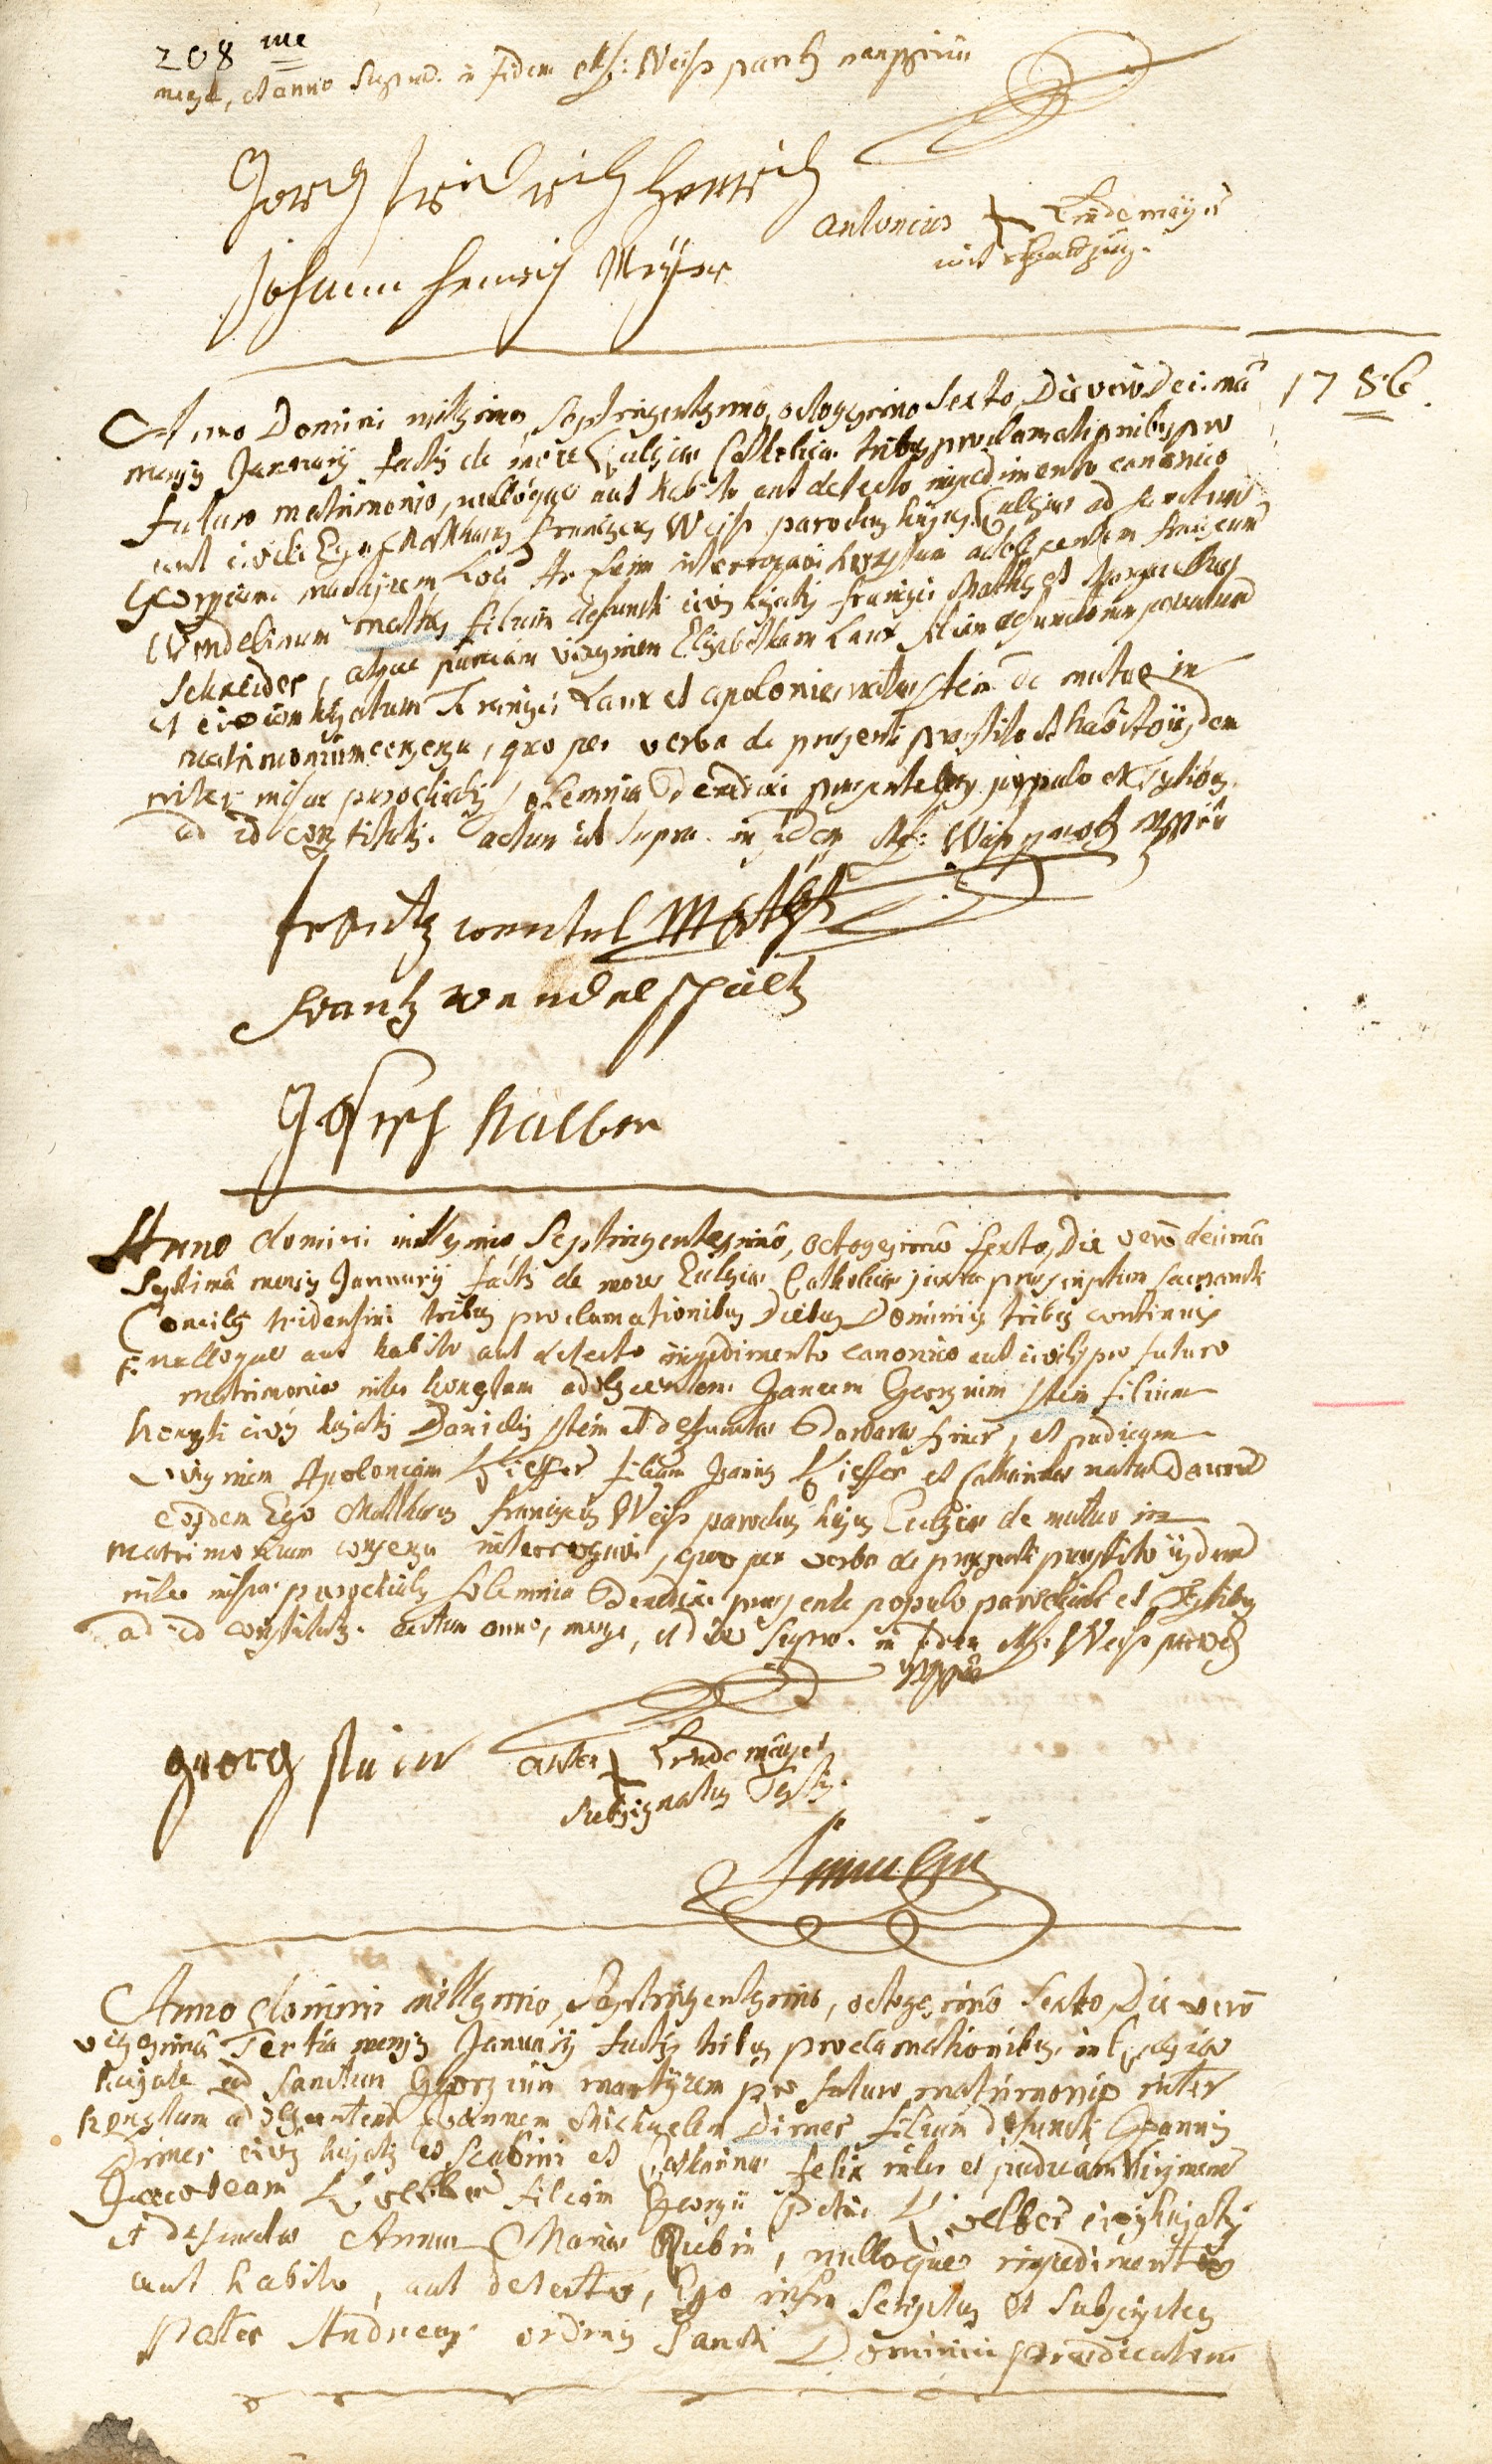 208 me
mense, et anno supra. in fidem Mf: Weiß paroch manppriâ
Georg fridrich Henrich
antonius + Lindemayer
mit handzug.
Johann Henrich Meyer
1786.
Anno Domini millesimo, septingentesimo, octogesimo sexto, Die vero Decimâ
mensis January factis de more Ecclesiae Catholicae tribus proclamationibus pro
futuro matrimonio, nulloque aut habito aut detecto impedimento canonico
aut civili Ego Matthaeus Franciscus Weiß parochus hujus Ecclesiae ad sanctum
Georgium martyrem interrogavi honestum adolescentem franciscum
Wendelinum Mathis filium defuncti civis hujatis francisci Mathis et Margarethae
Schneider, atque pudicam virginem Elisabetham Laux filiam defunctorum
et civium hujatum Francisci Laux et apoloniae natae stein de mutuo in
matrimonium consensu, quo per verba de presenti prestito et habito iisdem
inter misae parochialis solemnia Benedixi presentibus populo et Testibus
ad id constitutis. actum ut supra. in fidem Mf: Weiß paroch mppriâ
frantz wentel Mathis
Frantz wendel
Joseph Kälber
Anno domini millesimo Septingentesimo, octogesimo sexto, Die verò decimâ
Septimâ mensis January factis de more Ecclesiae Catholicae juxta praescriptum sacrosancti
Concilii tridentini tribus proclamationibus Diebus Dominicis tribus continuis
nulloque aut habito aut detecto impedimento canonico aut civili pro futuro
matrimonio inter honestum adolescentem Joannem Georgium stein filium
honesti civis hujatis Danielis stein et defunctae Barbarae, et pudicam
virginem Apoloniam Kieffer filiam Joannis Kieffer et Catharinae natae
eosdem Ego Matthaeus franciscus Weiß parochus hujus Ecclesiae de mutuo in
matrimonium consensu interrogavi, quo per verba de presenti prestito iisdem
inter misae parochialis solemnia Benedixi presente populo parochiali et Testibus
ad id constitutis. actum anno, mense, et die supra. in fidem Mf. Weiß paroch
mppriâ
georg stein
anton + Lindemayer
subsignatus Testis.
Anno domini millesimo, Septingentesimo, octogesimo sexto, Die verò
vigesimâ Tertia mensis January factis tribus proclamationibus in Ecclesia
hujate ad Sanctum Georgium martyrem pro futuro matrimonio inter
honestum adolescentem Joannem Michaelem Dirner filium defuncti Joannis
Dirner civis hujatis et scabini et Catharinae felix inter et pudicam virginem
Jacobeam Koelber filiam Georgii Petri Koelber civis hujatis
et defunctae Annae Mariae Rubin, nulloque impedimento
aut habito, aut detecto, Ego infra scriptus et subscriptus
Pater Andreas ordinis Sancti Dominici Praedicatorum